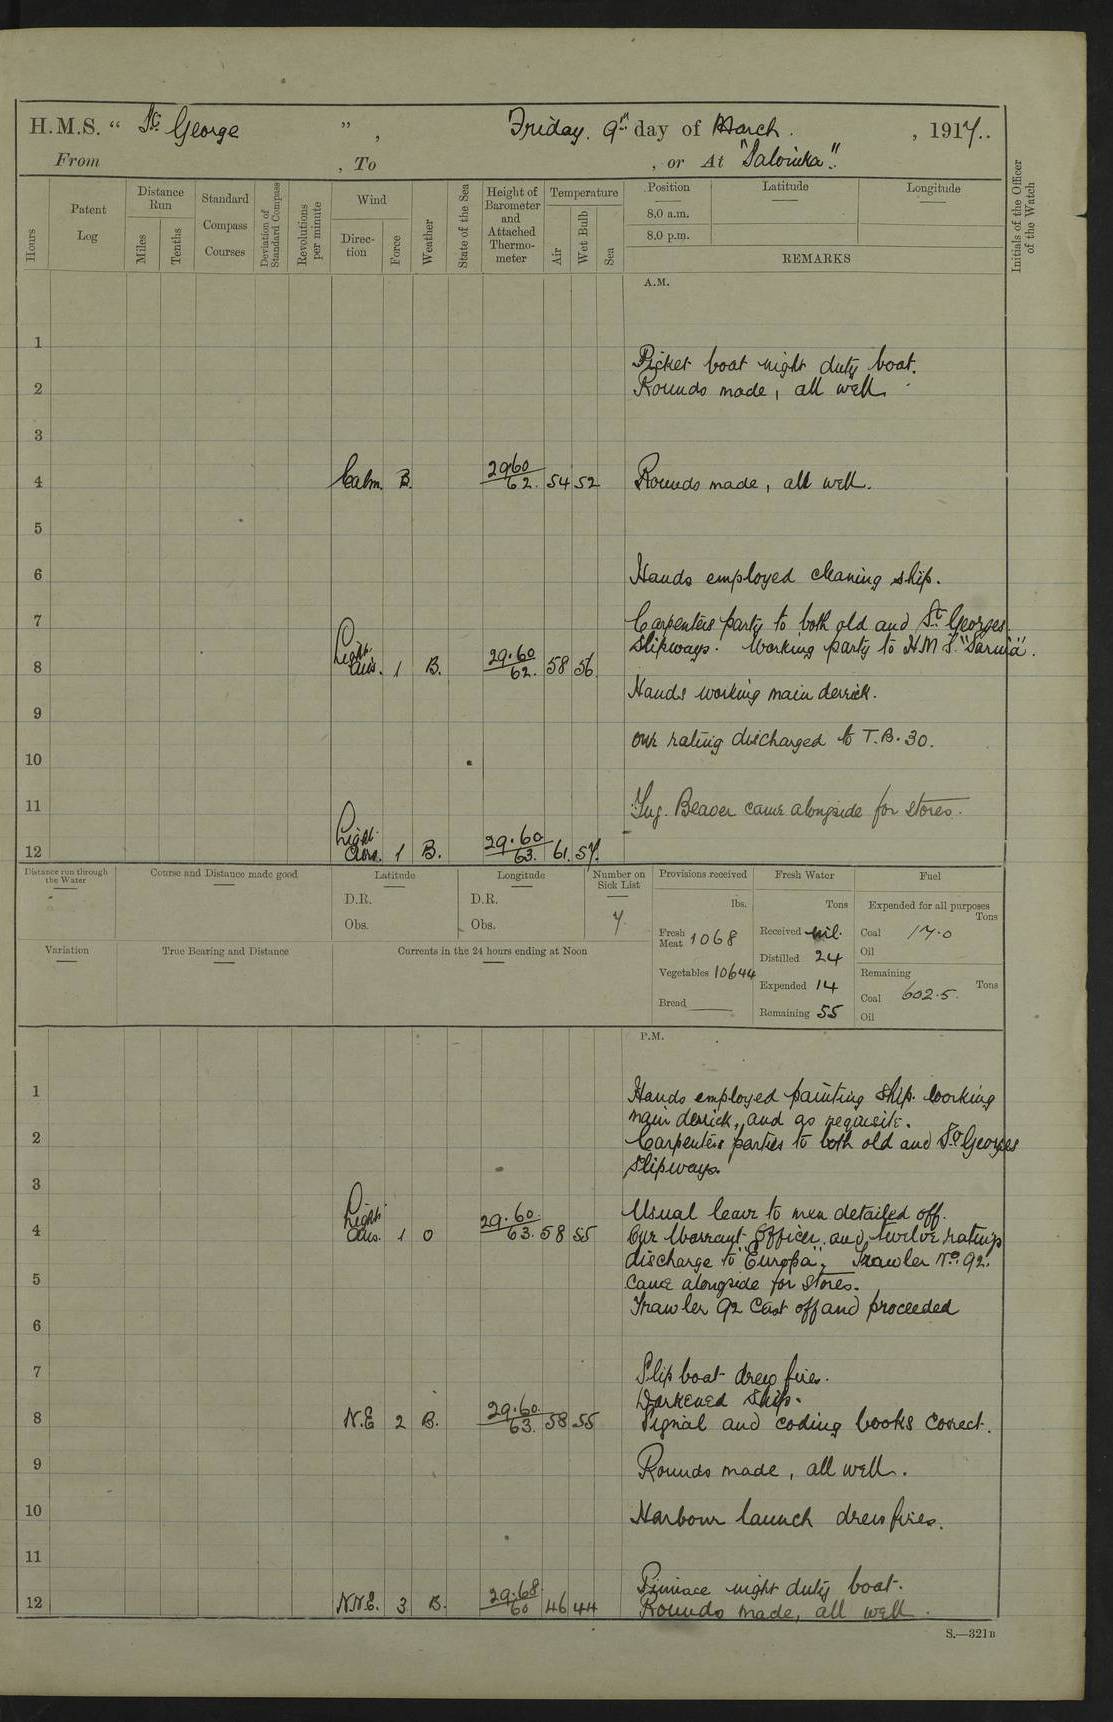 H.M.S. “ St George ” , Friday. 9th day of March. , 1917..
From , To , or At "Salonika".
Hours
Patent Log
Distance Run
Miles
Tenths
Standard Compass Courses
Deviation of Standard Compass
Revolutions per minute
Wind
Direction
Force
Weather
State of the Sea
Height of Barometer and Attached Thermometer
Temperature
Air
Wet Bulb
Sea
Position Latitude Longitude
8.0 a.m.
8.0 p.m.
REMARKS
Initials of the Officer of the Watch
A.M.
1
Picket boat night duty boat.
2 Rounds made, all well.
3
4 Calm. B. 29.60/62. 54 52 Rounds made, all well.
5
6 Hands employed cleaning ship.
7 Carpenters party to both old and St. Georges
slipways. Working party to H.M.S. "Sarnia".
8 Light airs. 1 B. 29.60/62. 58 56
Hands working main derrick.
9
one rating discharged to T.B. 30.
10
11 Tug. Beaver came alongside for stores.
12 Light airs. 1 B. 29.60/63. 61. 57.
Distance run through the Water
Course and Distance made good
Latitude
D.R.
Obs.
Longitude
D.R.
Obs.
Number on Sick List
7.
Provisions received
lbs.
Fresh Meat 1068
Vegetables 10644
Bread
Fresh Water
Tons
Received nil.
Distilled 24
Expended 14
Remaining 55
Fuel
Expended for all purposes
Tons
Coal 17.0
Oil
Remaining
Tons
Coal 602.5.
Oil
Variation
True Bearing and Distance
Currents in the 24 hours ending at Noon
P.M.
1 Hands employed painting ship. working
main derrick, and as requisite.
2 Carpenters parties to both old and St Georges
slipways.
3
Usual leave to men detailed off.
4 Light airs. 1 O 29.60/63. 58 55 One Warrant Officer and twelve ratings
discharge to "Europa", Trawler No. 92.
5 came alongside for stores.
Trawler 92 cast off and proceeded
6
7 Slip boat drew fires.
Darkened ship.
8 N.E 2 B. 29.60/63. 58 55 Signal and coding books correct.
9 Rounds made, all well.
10 Harbour launch drew fires.
11
Pinnace night duty boat.
12 N.N.E. 3 B. 29.68/60 46 44 Rounds made, all well.
S.—321B